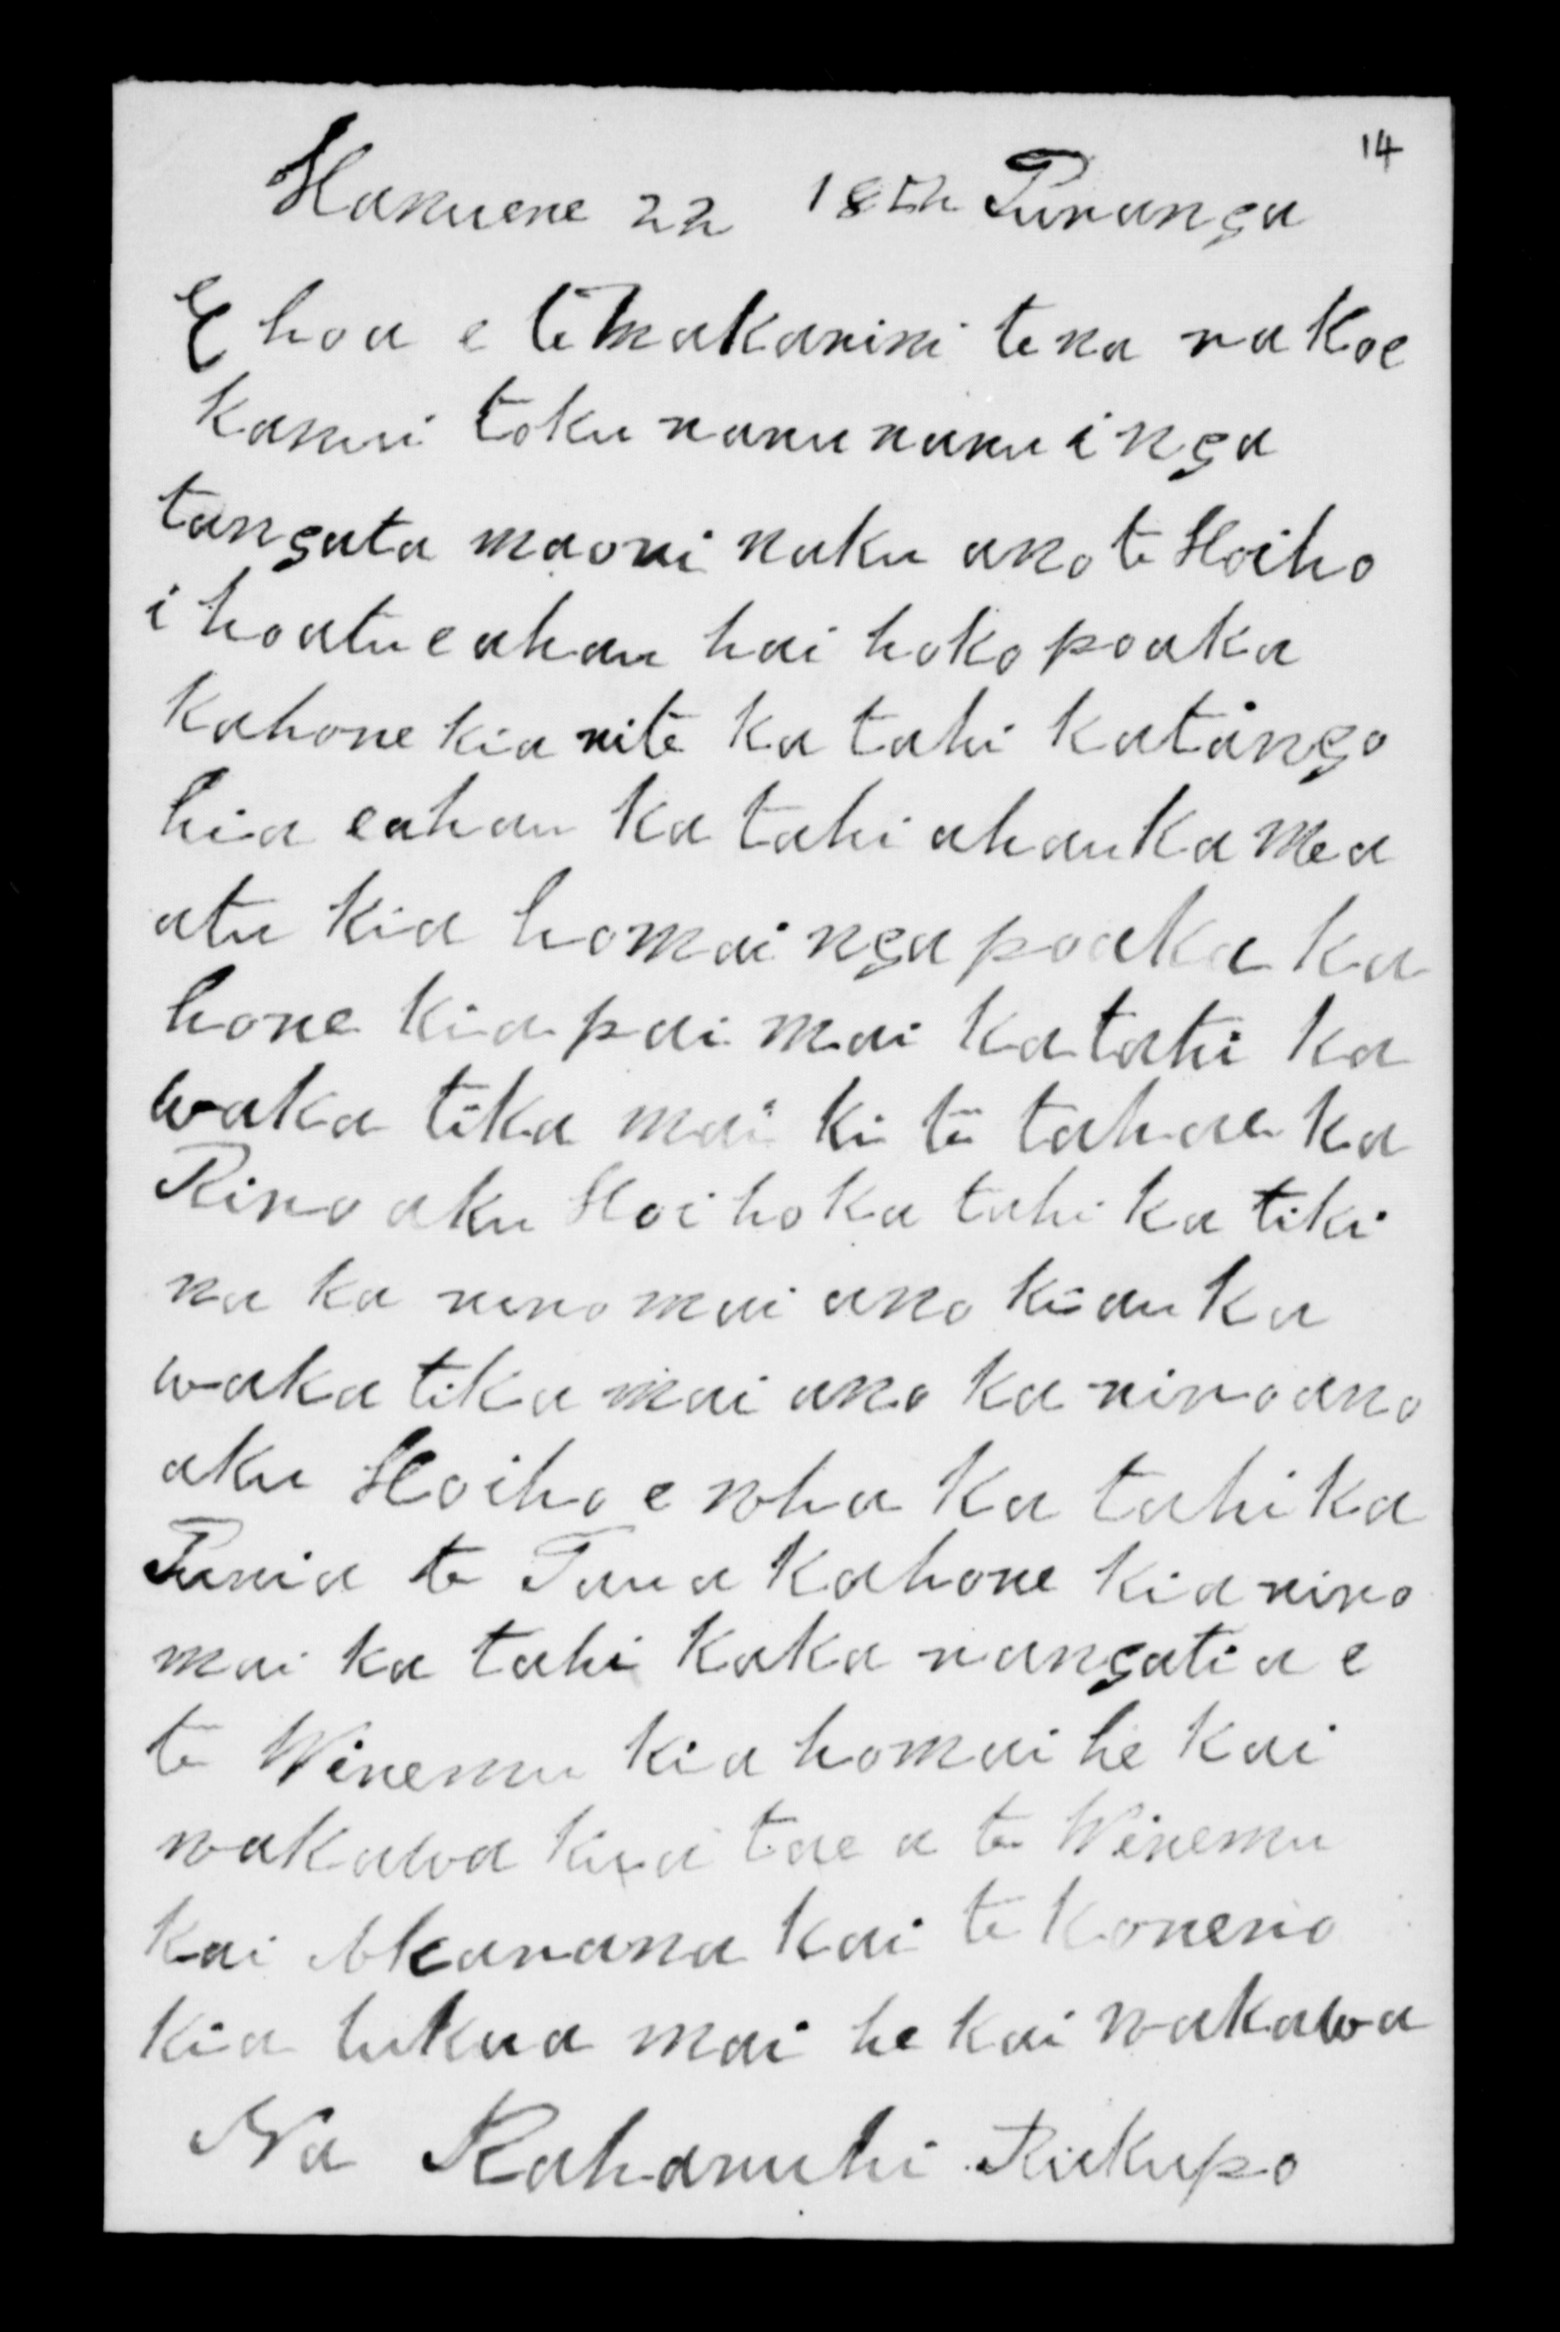 14
Hanuere 22 1852 Turanga
E hoa e te Makarini tena ra koe
Kanui toku raruraru i nga
tangata maori naku ano te Hoiho
i hoatu e ahau hai hoko poaka
kahore kia rite ka tahi ka tango
hia e ahau ka tahi ahau ka mea
atu kia homai nga poaka ka
hore kia pai mai ka tahi ka
waka tika mai ki te tahae ka
Riro aku Hoiho ka tahi ka tiki
na ka riro mai ano ki au ka
waka tika mai ano ka riro ano
aku Hoiho e wha ka tahi ka
Turia te Taua kahore kia riro
mai ka tahi kaka rangatia e
te Wiremu kia homai he kai
wakawa kua tae a te Wiremu
kai Akarana kai te Korero
kia tukua mai he kai wakawa
Na Raharuhi Rukupo